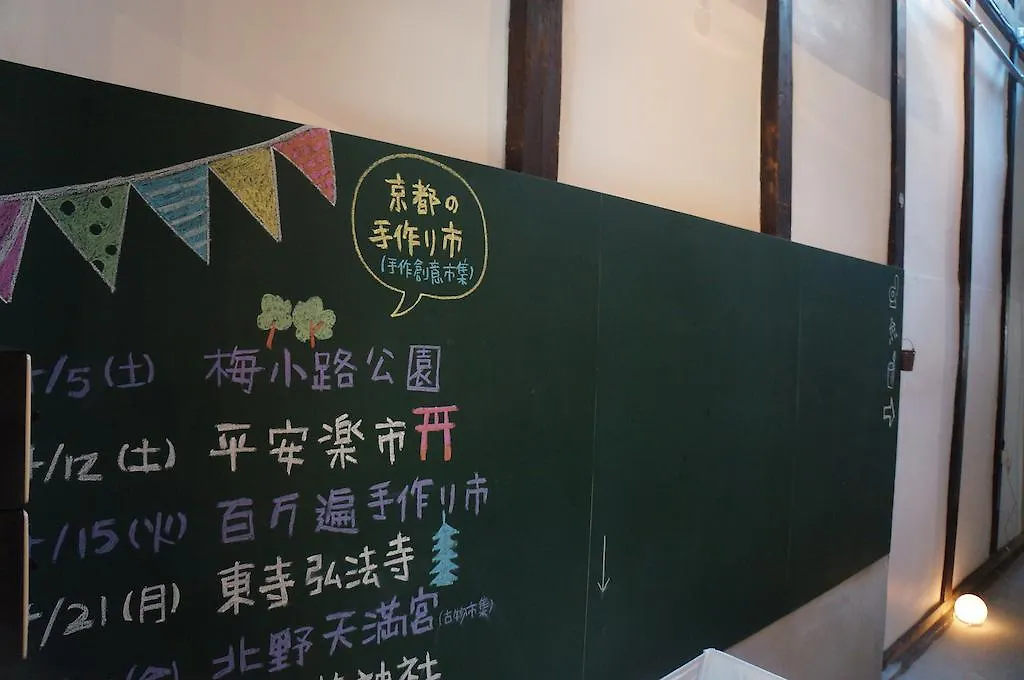 京都の
手作り市
(手作創意市集)
/5(土) 梅小路公園
/12(土) 平安楽市
/15(火) 百万遍手作り市
/21(月) 東寺弘法寺
(金) 北野天満宮(古物市集)
神社